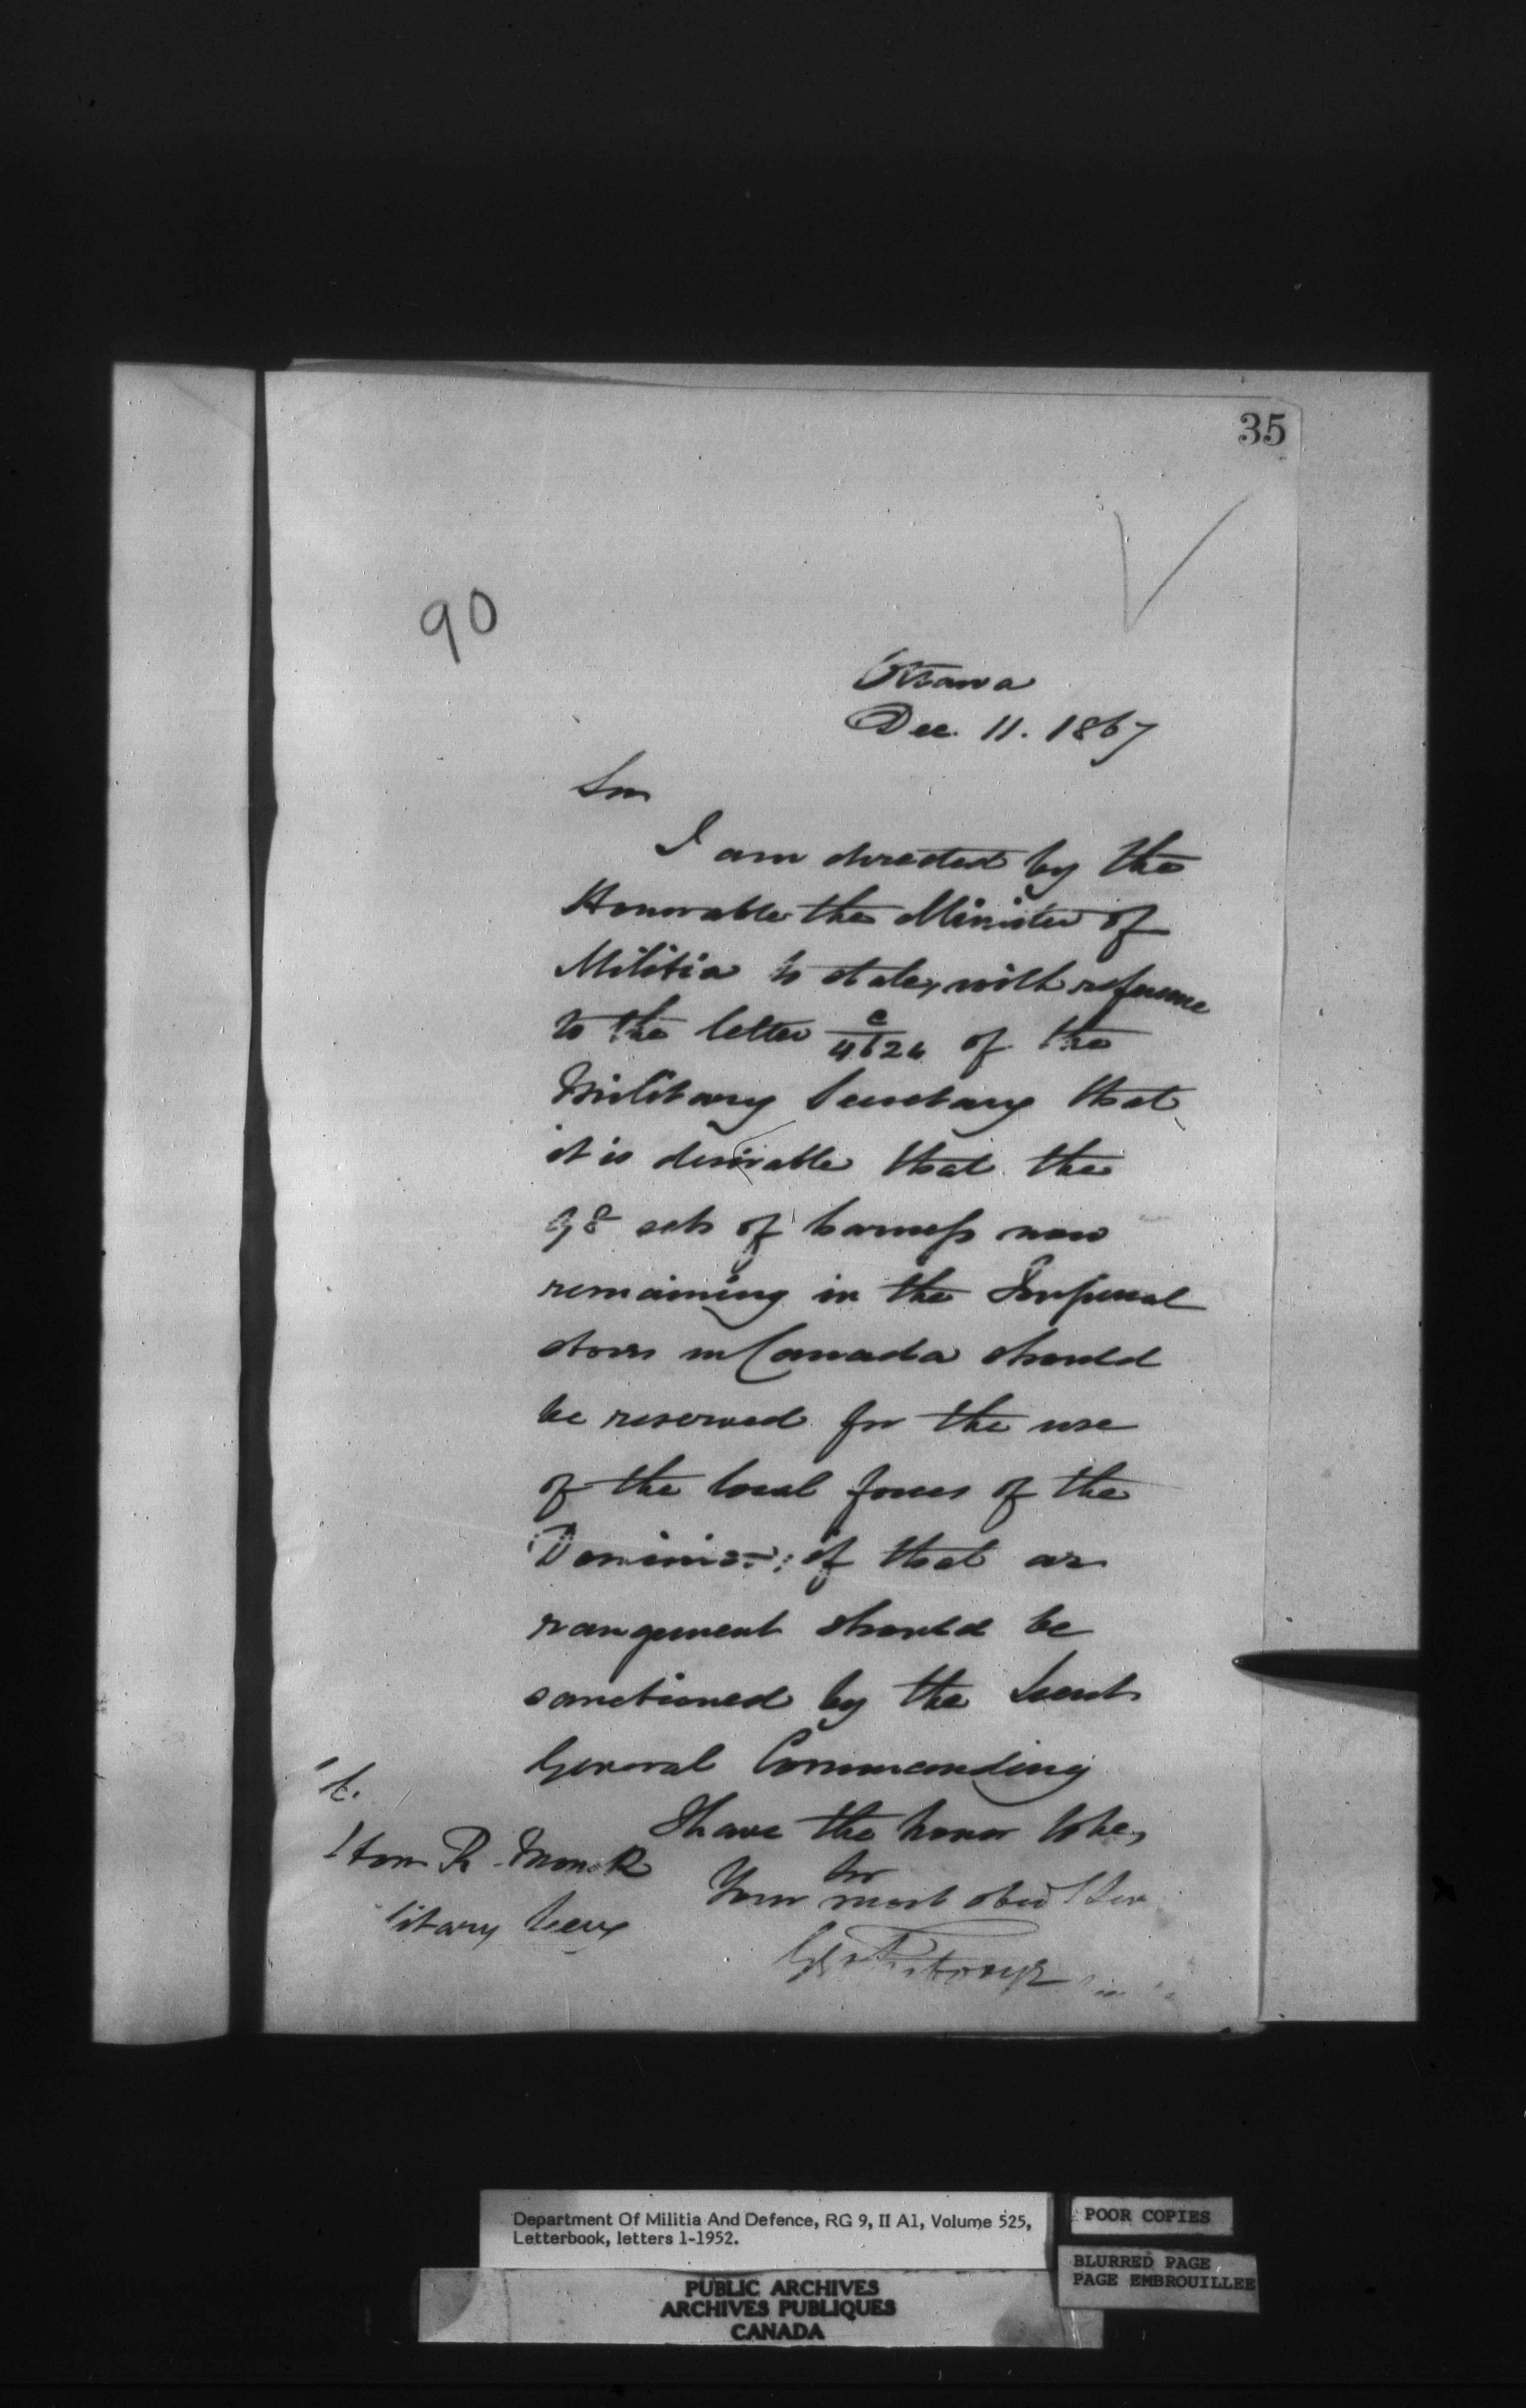 35
90
Ottawa
Dec. 11. 1867
Sir
I am directed by the
Honorable the Minister of
Militia to state, with reference
to the letter C/4626 of the
Military Secretary that
it is desirable that the
98 sets of harness now
remaining in the Imperial
stores in Canada should
be reserved for the use
of the local forces of the
Dominion; if that ar
rangement should be
sanctioned by the Lieut
General Commanding
I have the honor to be,
Sir
Your most obed Ser
Hon R. Monck
litary Secy
Department Of Militia And Defence, RG 9, II A1, Volume 525,
Letterbook, letters 1-1952.
POOR COPIES
BLURRED PAGE
PAGE EMBROUILLEE
PUBLIC ARCHIVES
ARCHIVES PUBLIQUES
CANADA